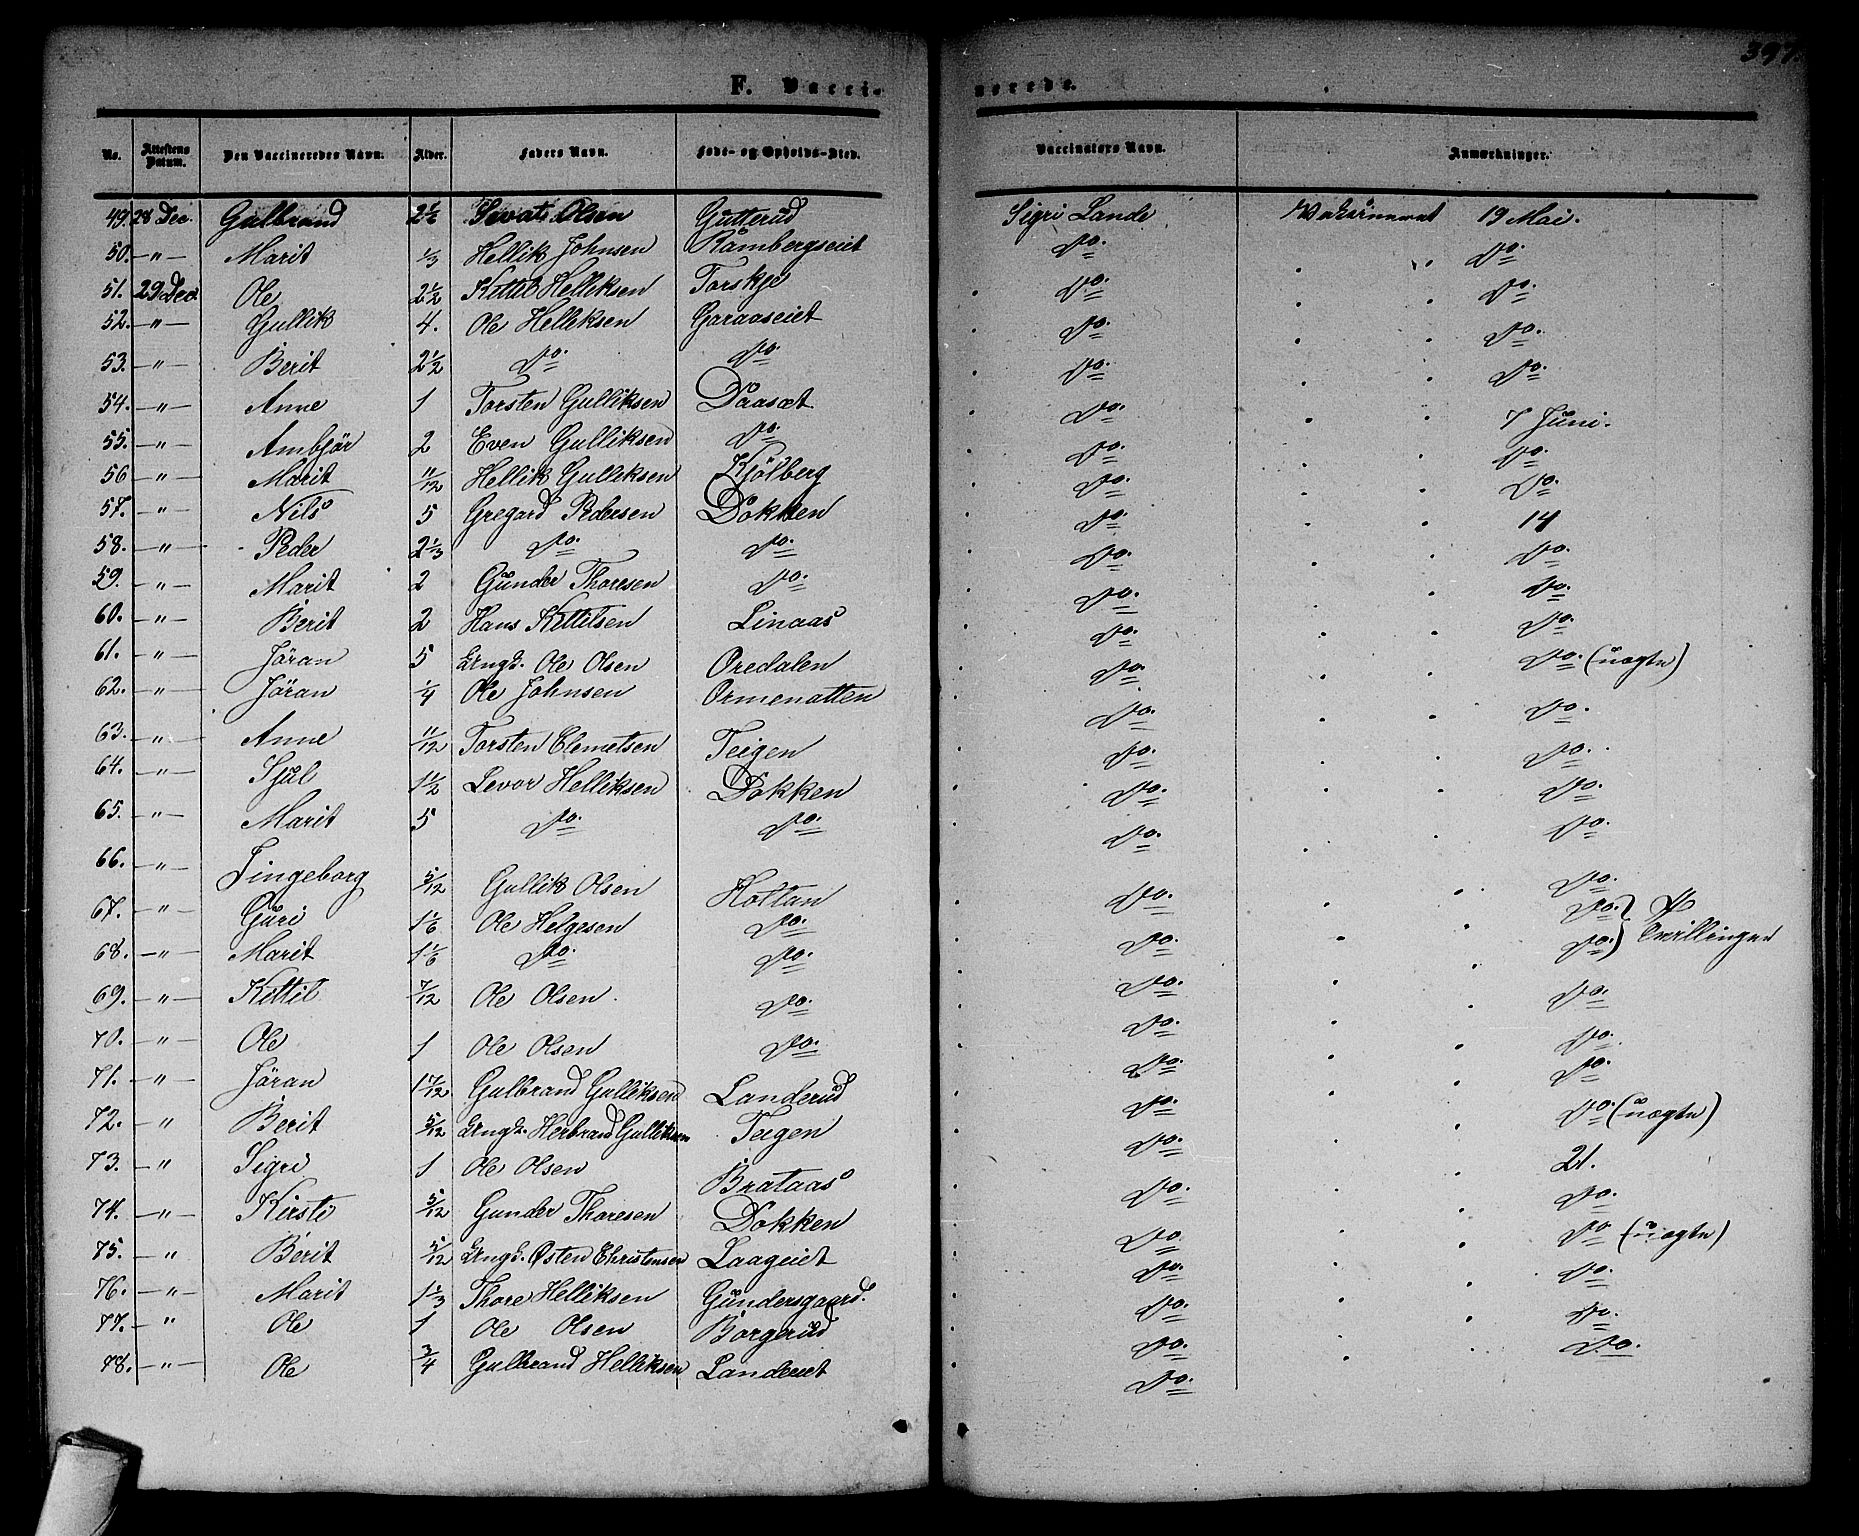 397.
F. Vaccinerede.
No. | Attestens Datum. | Den Vaccineredes Navn. | Alder. | Faders Navn. | Føde- og Opholds-Sted. | Vaccinators Navn. | Anmærkninger.
49. | 28 Dec. | Gulbrand | 2½ | Sevat Olsen | Gutterud | Sigri Lande | 19 Mai.
50. | –"– | Marit | ⅓ | Hellik Johnsen | Rambergseiet | Do. | Do.
51. | 29 Dec. | Ole | 2½ | Kittil Helliksen | Torskje | Do. | Do.
52. | –"– | Gullik | 4. | Ole Helleksen | Garaaseiet | Do. | Do.
53. | –"– | Berit | 2½ | Do. | Do. | Do. | Do.
54. | –"– | Anne | 1 | Torsten Gulliksen | Daasæt | Do. | 7 Juni.
55. | –"– | Ambjör | 2 | Even Gulliksen | Do. | Do. | Do.
56 | –"– | Marit | 11/12 | Hellik Gulliksen | Kjölberg | Do. | Do.
57. | –"– | Nils | 5 | Gregard Pedersen | Dokken | Do. | 14
58. | –"– | Peder | 2⅓ | Do. | Do. | Do. | Do.
59. | –"– | Marit | 2 | Gunder Thoresen | Do. | Do. | Do.
60. | –"– | Berit | 2 | Hans Kittilsen | Linaas | Do. | Do.
61. | –"– | Jöran | 5 | Ungk. Ole Olsen | Oredalen | Do. | Do. (uægte)
62. | –"– | Jöran | ¼ | Ole Johnsen | Ormenatten | Do. | Do.
63. | –"– | Anne | 11/12 | Torsten Clemetsen | Teigen | Do. | Do.
64. | –"– | Sjul | 1½ | Levor Helliksen | Dokken | Do. | Do.
65. | –"– | Marit | 5 | Do. | Do. | Do. | Do.
66. | –"– | Jingeborg | 5/12 | Gullik Olsen | Hottan | Do. | Do.
67. | –"– | Guri | 1⅙ | Ole Helgesen | Do. | Do. | Do. } Tvillinger
68. | –"– | Marit | 1⅙ | Do. | Do. | Do. | Do. }
69. | –"– | Kittil | 7/12 | Ole Olsen. | Do. | Do. | Do.
70. | –"– | Ole | 1 | Ole Olsen | Do. | Do. | Do.
71. | –"– | Jöran | 1 7/12 | Gulbrand Gulliksen | Landerud | Do. | Do.
72. | –" | Berit | 5/12 | Ungk. Herbrand Gulliksen | Teigen | Do. | Do. (uægte)
73. | –" | Sigri | 1 | Ole Olsen | Brataas | Do. | 21.
74. | –"– | Kirsti | 5/12 | Gunder Thoresen | Dokken | Do. | Do.
75. | –" | Berit | 5/12 | Ungk. Østen Christensen | Laageiet | Do. | Do (uægte)
76. | –"– | Marit | 1⅓ | Thore Helliksen | Gundersgaard. | Do. | Do.
77. | –" | Ole | 1 | Ole Olsen | Borgerud | Do. | Do.
78. | –"– | Ole | ¾ | Gulbrand Helliksen | Landeeiet | Do. | Do.
Do.